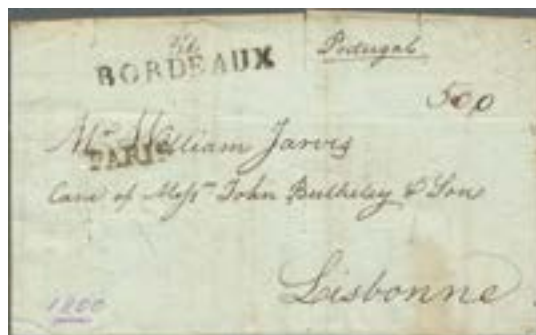 BORDEAUX
Portugal
500
Mr. William Jarvis
PARIS
Care of Messrs John Bulkeley & Son
Lisbonne
1800